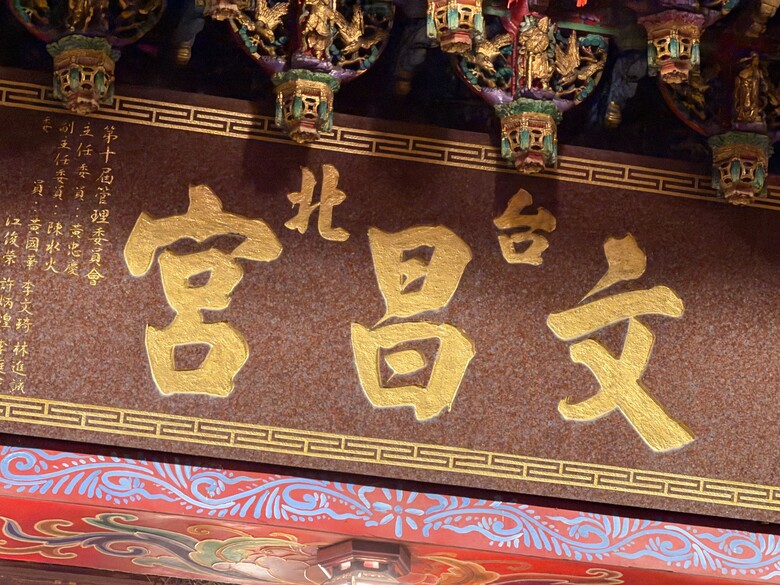 台北
文昌宮
第十屆管理委員會
主任委員：黃忠慶
副主任委員：陳水火
委員：黃國華 李文琦 林進誠
江俊榮 許炳煌